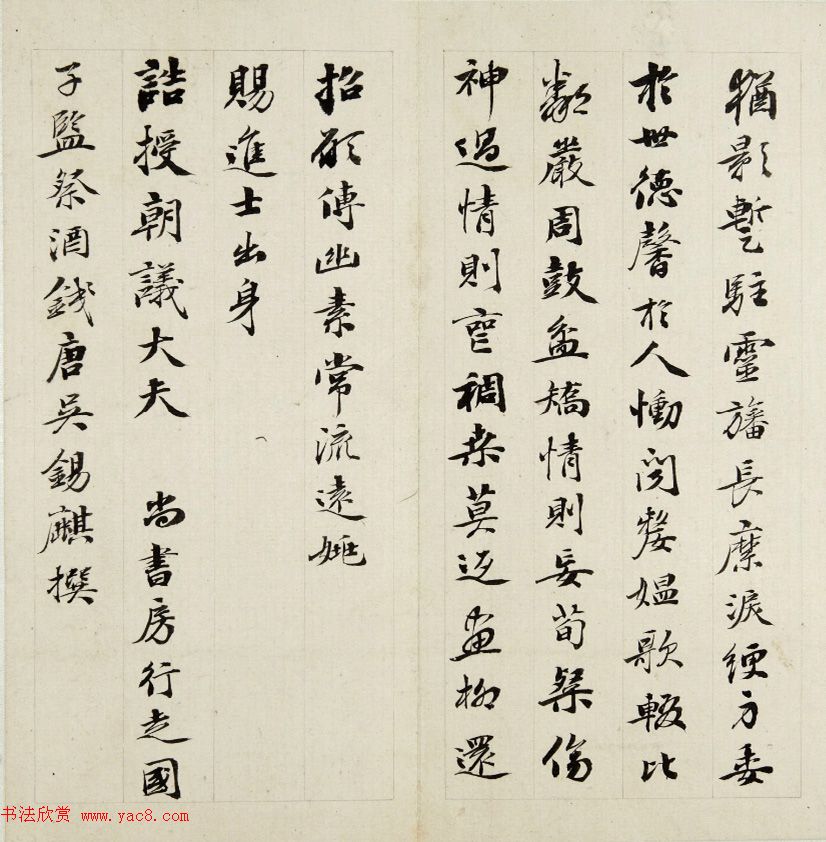 猶影暫駐靈旛長縻淚綆方委
於世德馨於人慟閔嫠媼歌輟比
鄰嚴周鼓盆矯情則妄荀粲傷
神過情則 裯桒莫返畫柳還
招欲傅幽素常流遠
賜進士出身
誥授朝議大夫 尚書房行走國
子監祭酒錢唐吳錫麒撰
书法欣赏 www.yac8.com